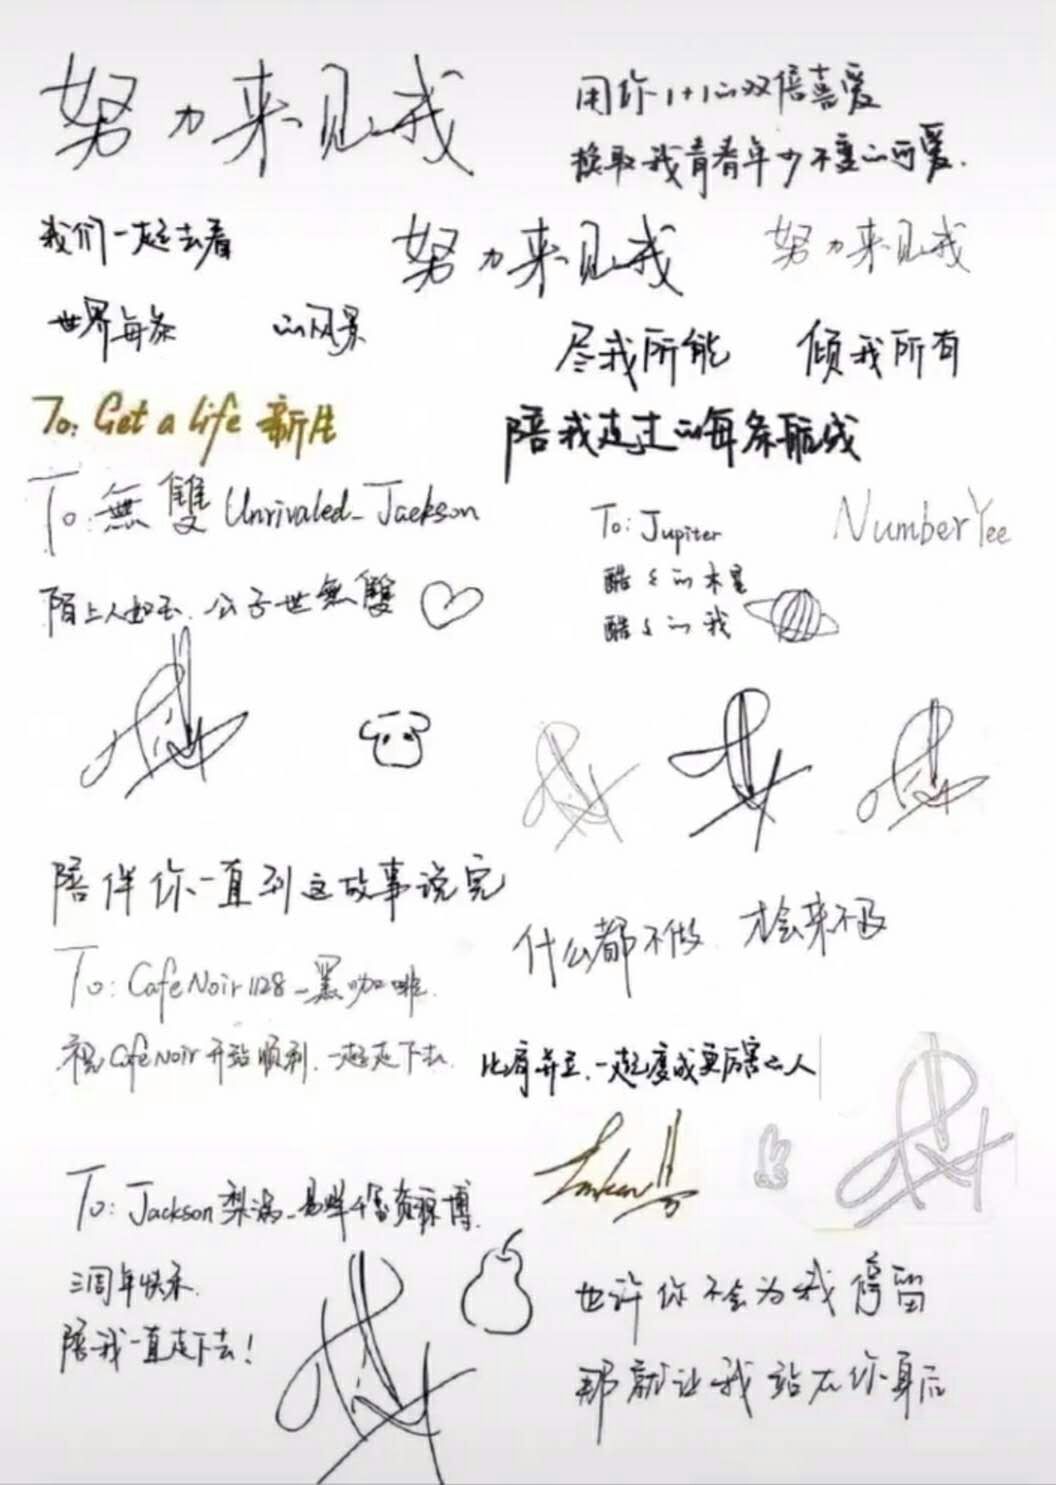 努力来见我
用你1+1的双倍喜爱
换取我青春年少不变的可爱.
我们一起去看
努力来见我
努力来见我
世界每条 的风景
尽我所能 倾我所有
To: Get a life 新片
陪我走过的每条航线
To: 無雙 Unrivaled_Jackson
To: Jupiter
NumberYee
酷酷的木星
陌上人如玉. 公子世無雙
酷酷的我
陪伴你一直到这故事说完
什么都不做 才会来不及
To: CafeNoir1128_黑咖啡.
祝CafeNoir开站顺利. 一起走下去.
比肩并立. 一起变成更厉害的人
To: Jackson梨涡_易烊千玺资源博.
三周年快乐.
陪我一直走下去!
也许你不会为我停留
那就让我站在你身后